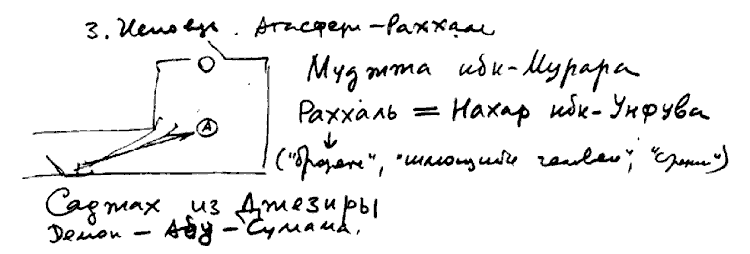 3. Исповедь. Агасфер-Раххаль
А
Муджжа ибн-Мурара
Раххаль = Нахар ибн-Унфува
("бродяга", "шляющийся человек",
Саджах из Джезиры
Демон - Абу-Сумама.